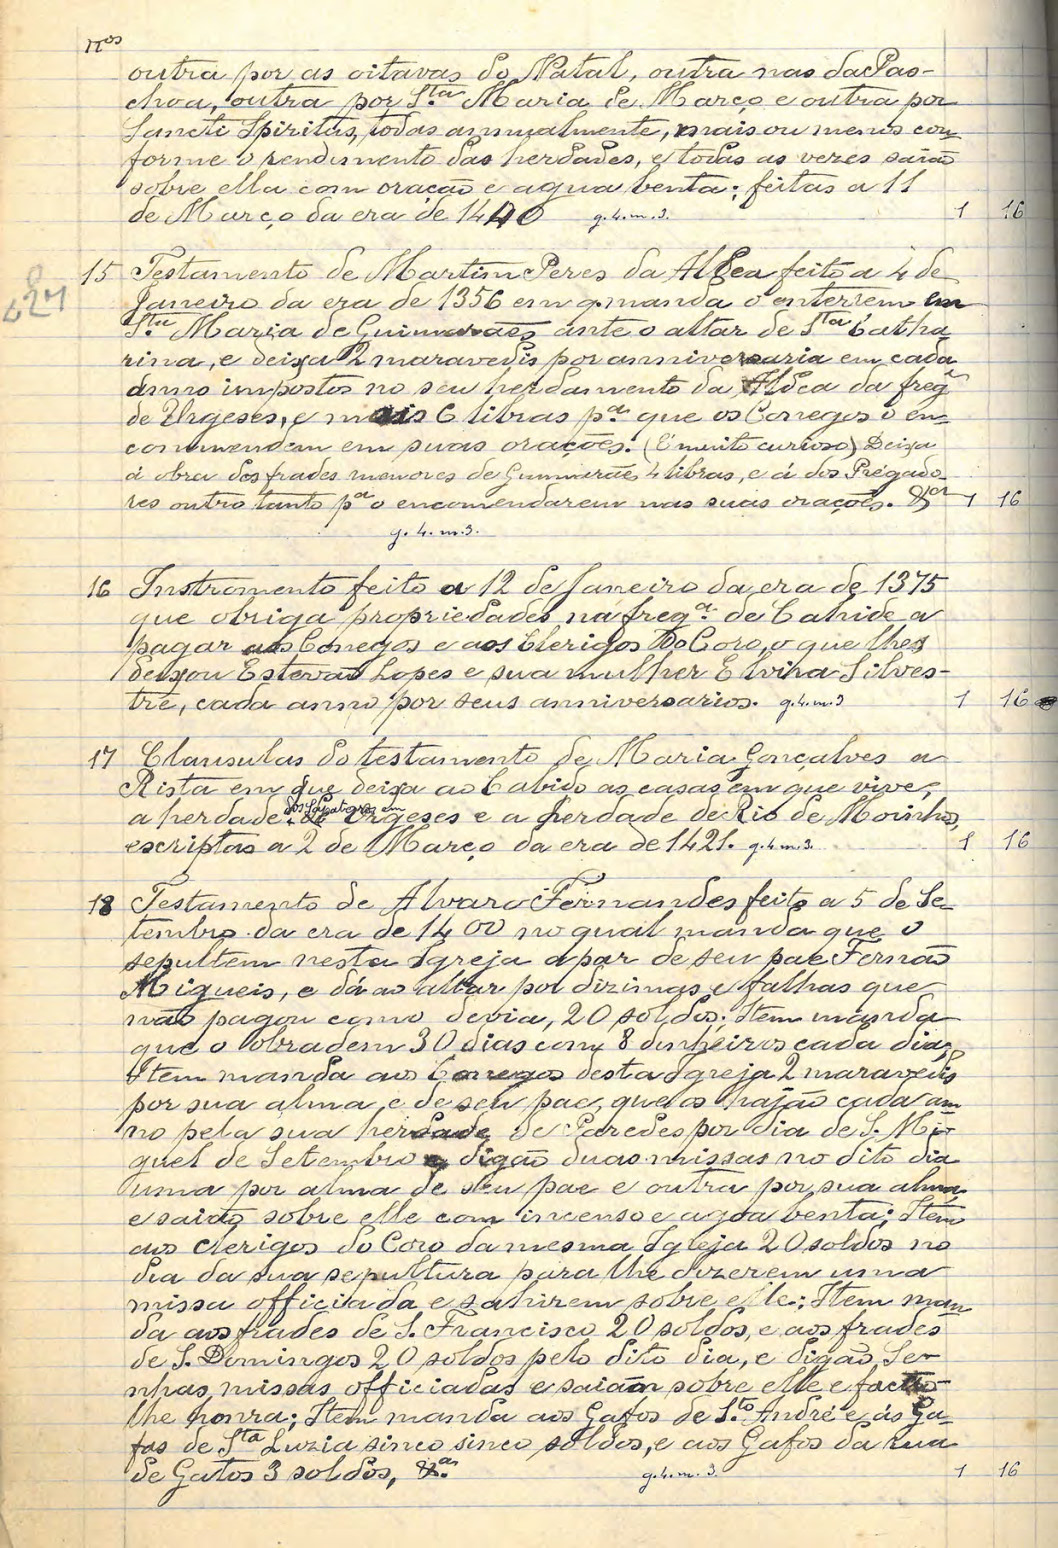 nos
outra por as oitavas do Natal, outra nas da Pas-
choa, outra por Sta Maria de Março e outra por
Sancti Spiritus, todas annualmente, mais ou menos con
forme o rendimento das herdades, e todas as vezes saião
sobre ella com oração e agua benta; feitas a 11
de Março da era de 1440 g. 4. m. 3. 1 16
15 Testamento de Martim Peres da Aldea feito a 4 de
Janeiro da era de 1356 em q. manda o enterrem em
Sta Maria de Guimarães ante o altar de Sta Catha
rina, e deixa 2 maravedis por anniversaria em cada
anno impostos no seu herdamento da Aldea da fregª
de Urgeses, e mais 6 libras pª que os Conegos o en
commendem em suas orações. (É muito curioso) Deixa
á obra dos frades menores de Guimarães 4 libras, e á dos Pregado-
res outro tanto pª o encomendarem nas suas orações. &ª 1 16
g. 4. m. 3.
16 Instromento feito a 12 de Janeiro da era de 1375
que obriga propriedades na fregª. de Cahide a
pagar aos Conegos e aos Clerigos do Coro, o que lhes
deixou Estevão Lopes e sua mulher Elvira Silves-
tre, cada anno por seus anniversarios. g. 4. m. 3 1 16
17 Clausulas do testamento de Maria Gonçalves a
Rista em que deixa ao Cabido as casas em que vive,
a herdade dos Sapateiros em Urgeses e a herdade de Rio de Moinhos,
escriptas a 2 de Março da era de 1421. g. 4. m. 3. 1 16
18 Testamento de Alvaro Fernandes feito a 5 de Se-
tembro da era de 1400 no qual manda que o
sepultem nesta Igreja a par de seu pae Fernão
Migueis, e dá ao altar por dizimas e falhas que
não pagou como devia, 20 soldos; Item manda
que o obradem 30 dias com 8 dinheiros cada dia;
Item manda aos Conegos desta Igreja 2 maravedis
por sua alma e de seu pae, que os hajão cada an
no pela sua herdade de Paredes por dia de S. Mi-
guel de Setembro e digão duas missas no dito dia
uma por alma de seu pae e outra por sua alma
e saião sobre elle com incenso e agoa benta; Item
aos clerigos do Coro da mesma Igreja 20 soldos no
dia da sua sepultura para lhe dizerem uma
missa officiada e sahirem sobre elle; Item man
da aos frades de S. Francisco 20 soldos, e aos frades
de S. Domingos 20 soldos pelo dito dia, e digão Se-
nhas missas officiadas e saiam sobre elle e
lhe honra; Item manda aos Gafos de Sto André e ás Ga-
fas de Sta Luzia sinco sinco soldos, e aos Gafos da rua
de Gatos 3 soldos, &ª. g. 4. m. 3. 1 16